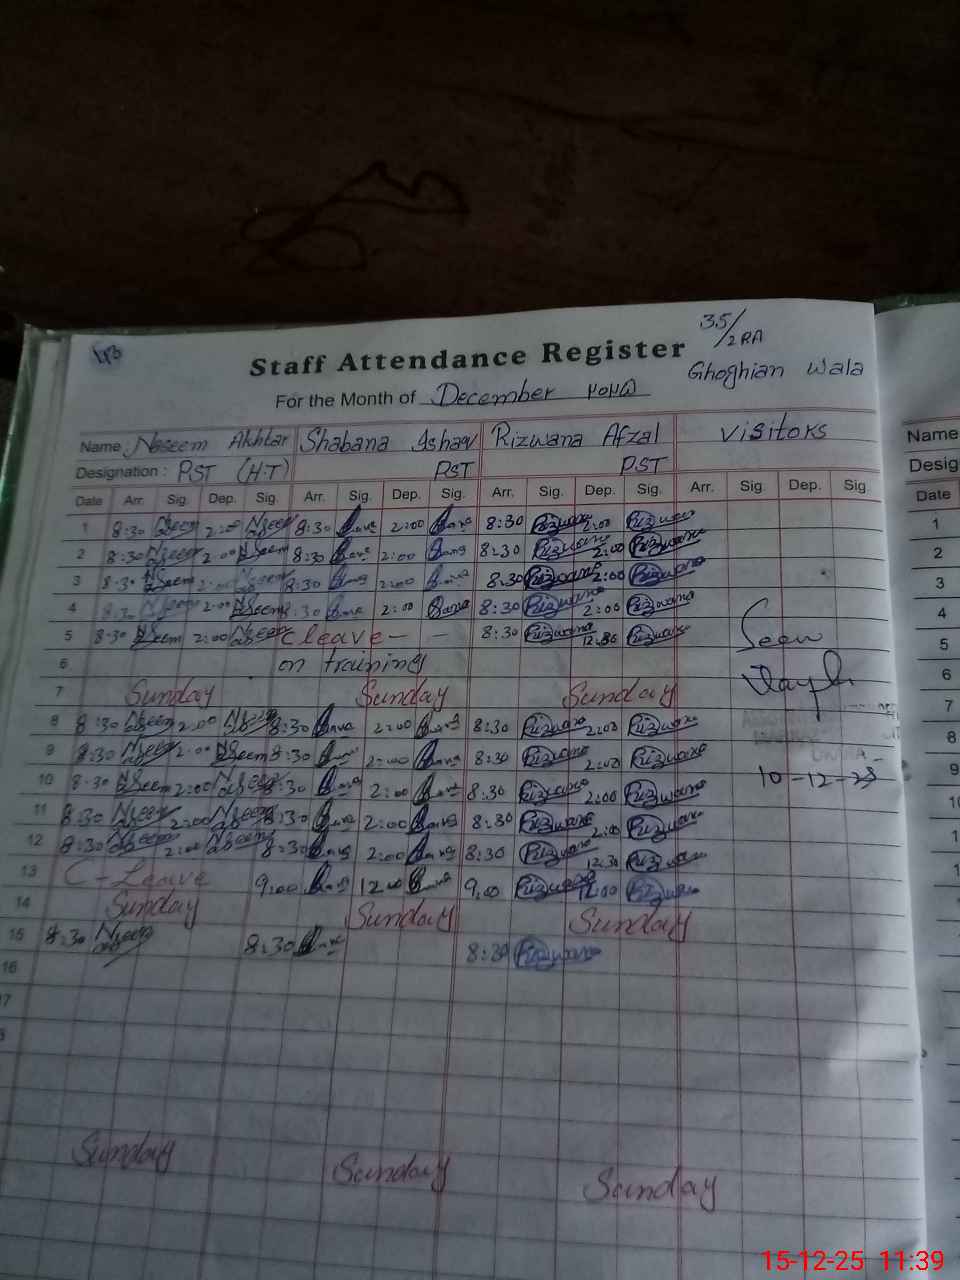 35/2RA
Staff Attendance Register
Ghoghian Wala
For the Month of December ۲۰۲۵
Name Naseem Akhtar Shabana Ishaq Rizwana Afzal Visitors
Designation : PST (H.T) PST PST
Date Arr. Sig. Dep. Sig. Arr. Sig. Dep. Sig. Arr. Sig. Dep. Sig. Arr. Sig. Dep. Sig
1 8:30 Naseem 2:00 Naseem 8:30 2:00 8:30 Rizwana 2:00 Rizwana
2 8:30 Naseem 2:00 Naseem 8:30 2:00 8:30 Rizwana 2:00 Rizwana
3 8:30 Naseem 2:00 Naseem 8:30 2:00 8:30 Rizwana 2:00 Rizwana
4 8:30 Naseem 2:00 Naseem 8:30 2:00 Sana 8:30 Rizwana 2:00 Rizwana
5 8:30 Naseem 2:00 Naseem C leave - - 8:30 Rizwana 12:30 Rizwana Seen
6 on training
7 Sunday Sunday Sunday
8 8:30 Naseem 2:00 Naseem 8:30 2:00 8:30 Rizwana 2:00 Rizwana
9 8:30 Naseem 2:00 Naseem 8:30 2:00 8:30 Rizwana 2:00 Rizwana
10-12-25
10 8:30 Naseem 2:00 Naseem 8:30 2:00 8:30 Rizwana 2:00 Rizwana
11 8:30 Naseem 2:00 Naseem 8:30 2:00 8:30 Rizwana 2:00 Rizwana
12 8:30 Naseem 2:00 Naseem 8:30 2:00 8:30 Rizwana 12:30 Rizwana
13 C-Leave 9:00 12:00 9:00 Rizwana 12:00 Rizwana
14 Sunday Sunday Sunday
15 8:30 Naseem 8:30 8:30 Rizwana
16
Sunday Sunday Sunday
Name
Desig
Date
1
2
3
4
5
6
7
8
9
15-12-25 11:39